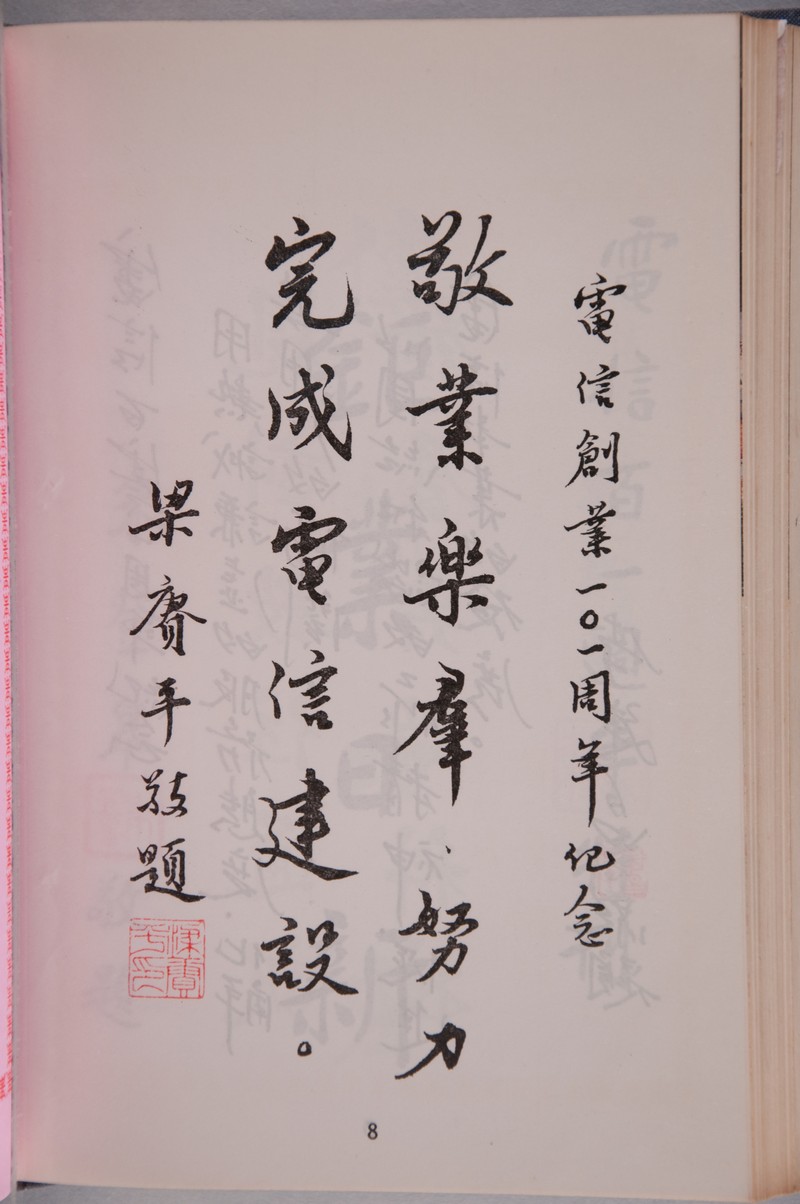 電信創業一〇一周年紀念
敬業樂羣、努力
完成電信建設。
梁賡平敬題
梁賡平印
8